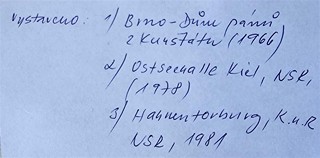 vystaveno: 1) Brno-Dům pánů
z Kunštátu (1966)
2) Ostseehalle Kiel, NSR,
(1978)
3) Hahnentorburg, K.u.R
NSR, 1981